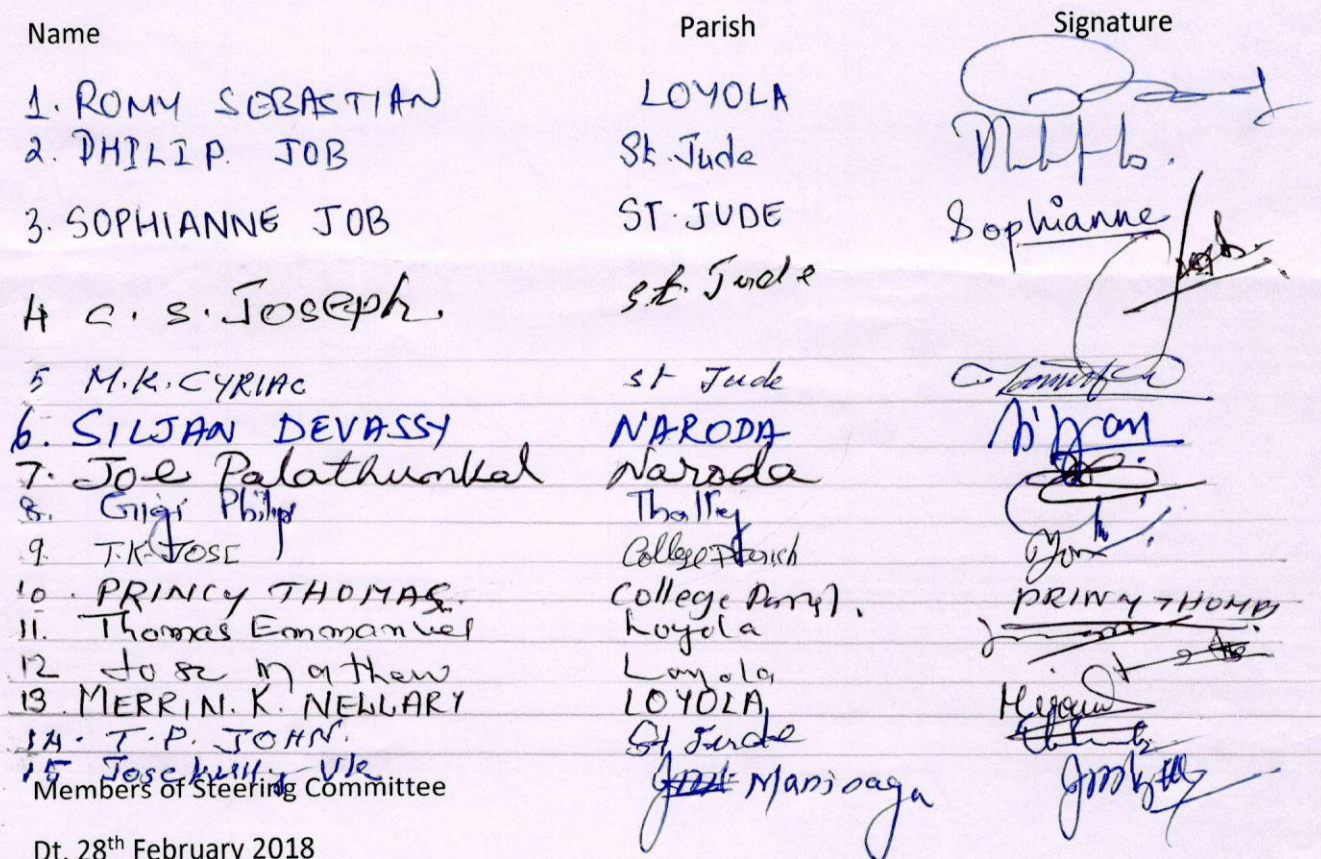 Name Parish Signature
1. ROMY SEBASTIAN LOYOLA
2. PHILIP. JOB St. Jude
3. SOPHIANNE JOB ST. JUDE Sophianne
4 C. S. Joseph. St. Jude
5 M.K. CYRIAC St Jude
6. SILJAN DEVASSY NARODA
7. Joe Palathunkal Naroda
8. Gigi Philip
9. T.K. JOSE College Parish
10. PRINCY THOMAS. College PRINCY THOMAS
11. Thomas Emmanuel Loyola
12 Jose Mathew Loyola
13. MERRIN. K. NELLARY LOYOLA
14. T.P. JOHN. St Jude
15 Josekutty
Members of Steering Committee
Dt. 28th February 2018